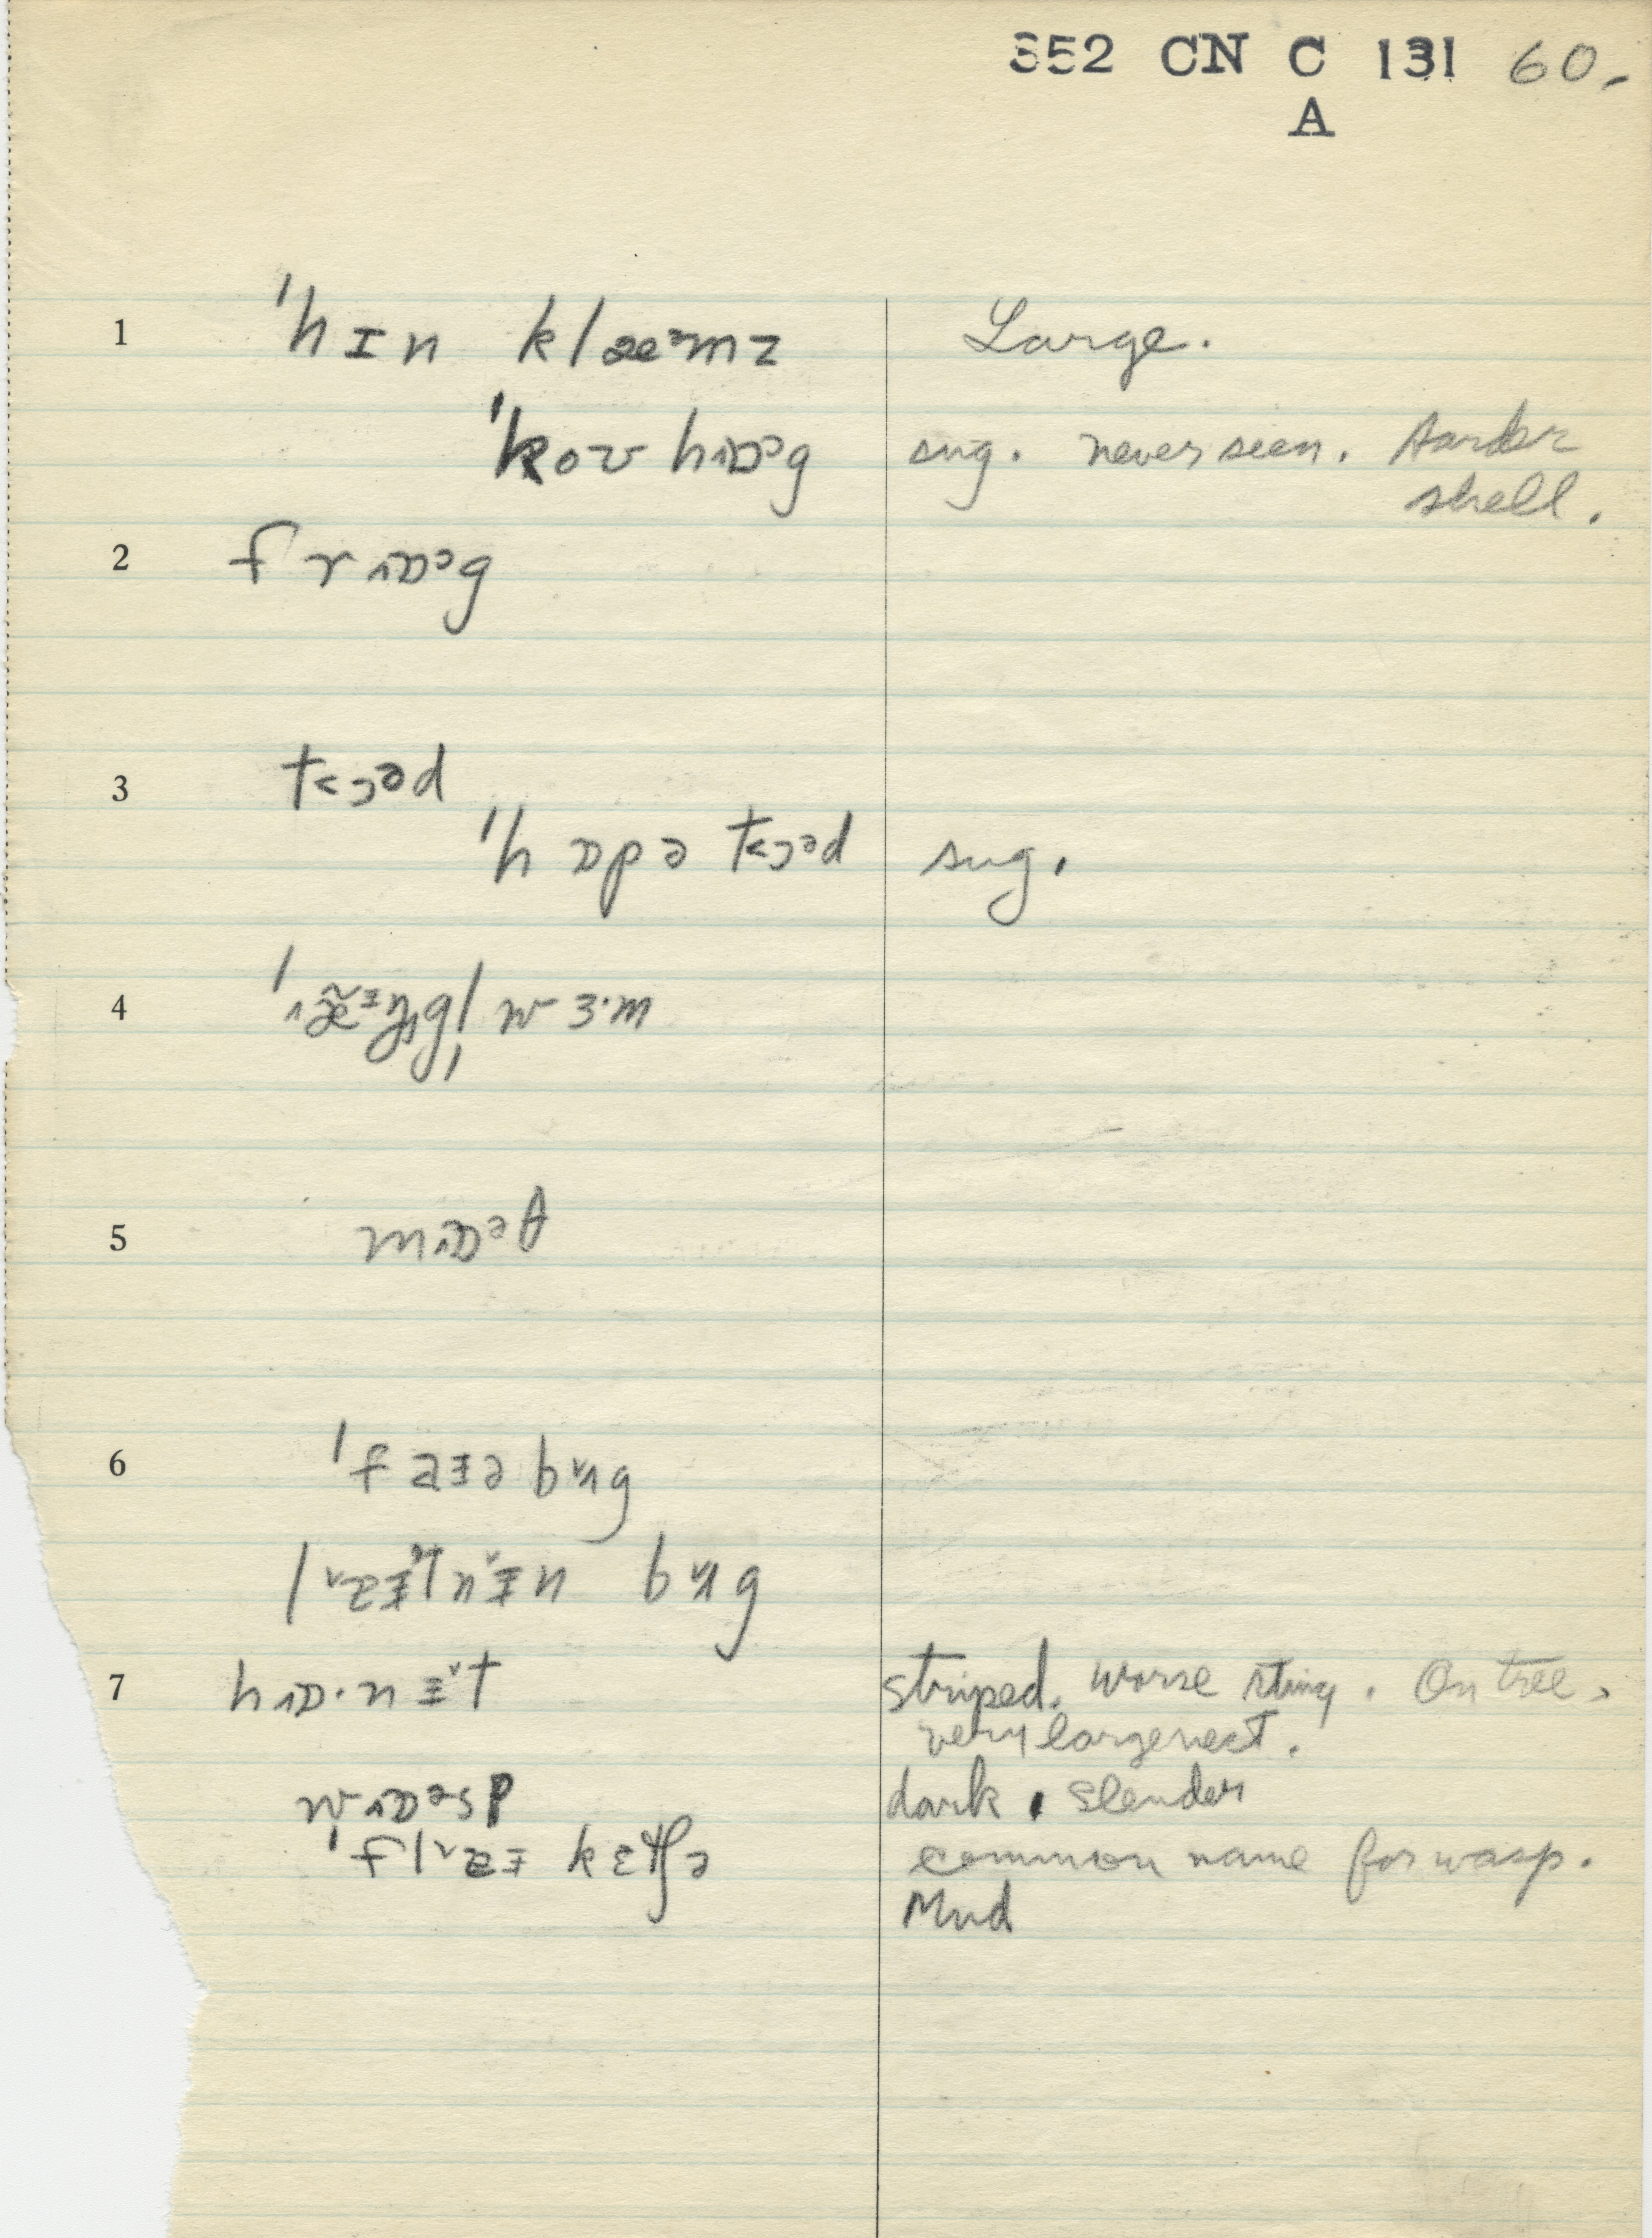 352 CN C 131 60.
A
1 ˈhɪn klæᵊmz Large.
ˈkoʊ hɒᵊg sug. never seen. Harder
shell.
2 frɒᵊg
3 toᵊd
ˈhɒpə toᵊd sug.
4 wɜ·m
5 mɒᵊθ
6 ˈfaɪə bʌg
bʌg
7 hɒ·nɪt striped. Worse sting. On tree,
very large nest.
wɒᵊsp dark, slender
common name for wasp.
Mud